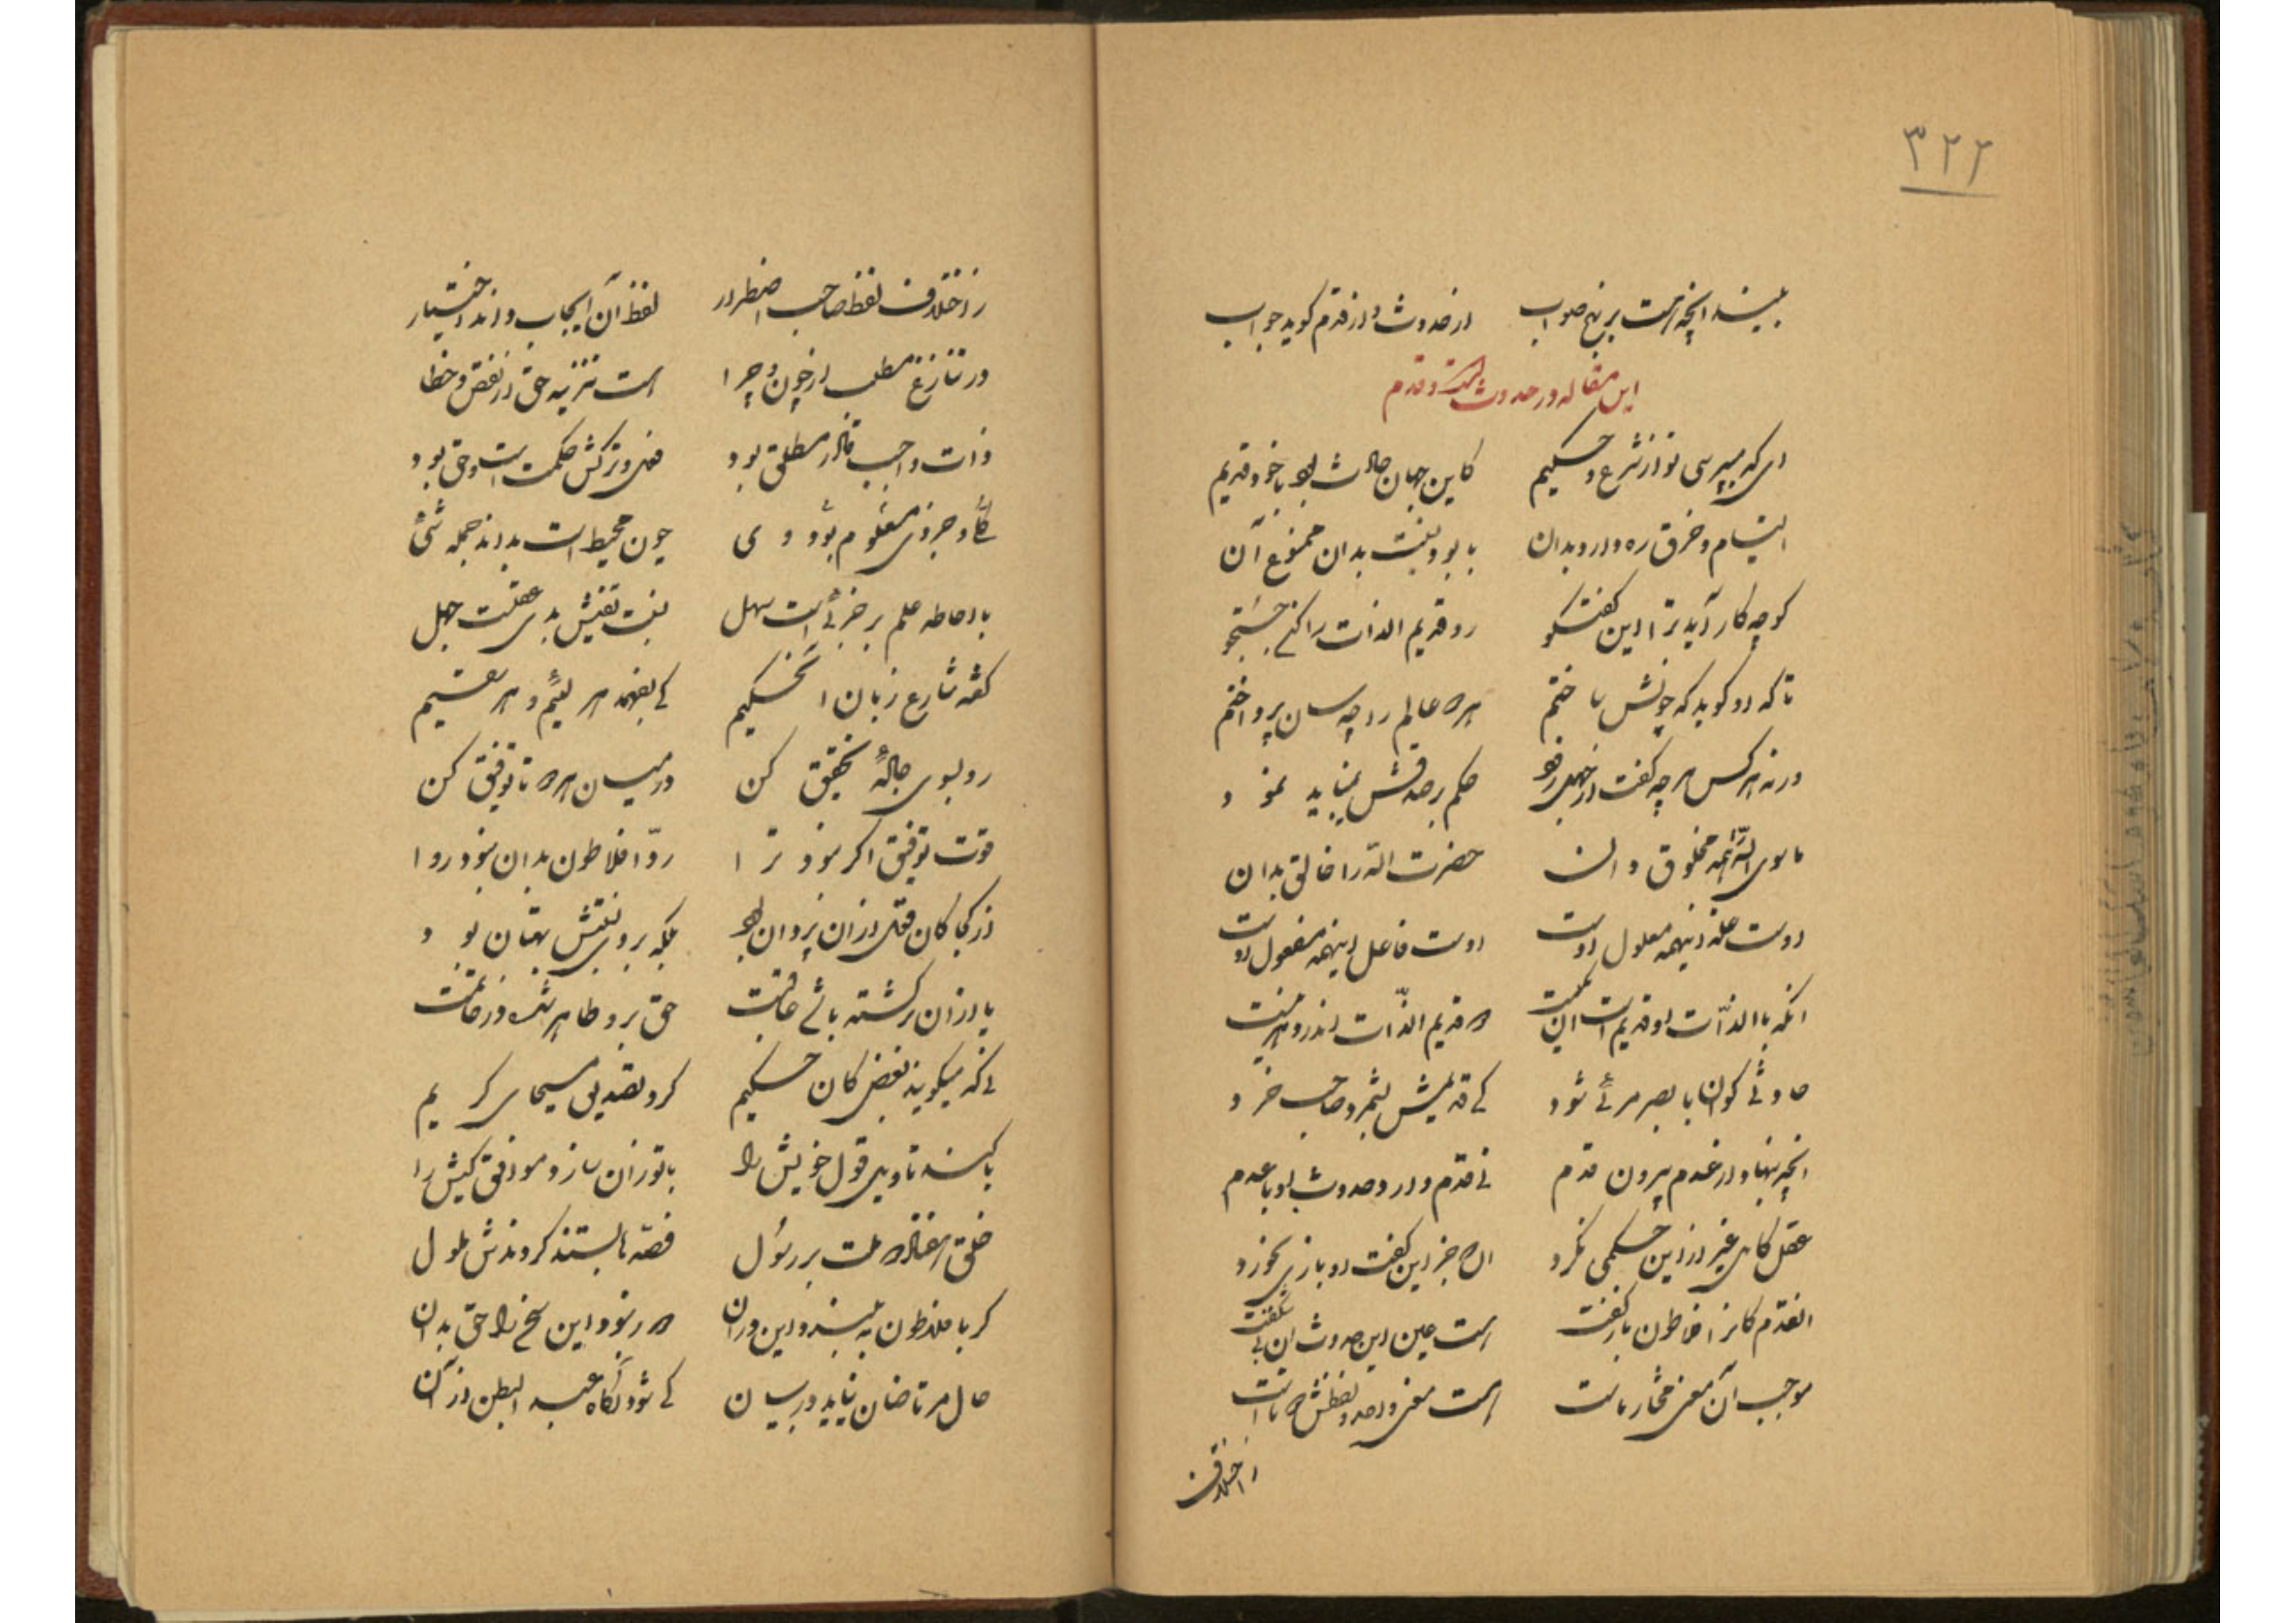 ۳۲۲
بیند آنچه هست بر نهج صواب از حدوث و از قدم گوید جواب
این مقاله در حدوث است و قدم
ای که میپرسی تو از شرع و حکیم کاین جهان حادث بود یا خود قدیم
التیام و خرق ره دارد بدان یا بود نسبت بدان ممنوع آن
گو چه کار آید ترا این گفتگو رو قدیم الذات را کن جستجو
تا که او گوید که چونش ساختم هر عالم را چه سان پرداختم
ورنه هر کس هر چه گفت از جهل حکم بر صدقش نباید نمود
ماسوی الله همه مخلوق دان حضرت الله را خالق بدان
اوست علت اینهمه معلول اوست اوست فاعل اینهمه مفعول اوست
آنکه بالذات او قدیم است آن قدیم الذات اندر
حادثی کو با بصر مرئی شود کی قدیمش بشمرد صاحب خرد
آنچه بنهاد از عدم بیرون قدم نی قدم دارد حدوث با عدم
عقل کامل غیر ازین حکمی نکرد جز این گفت او بازی بخورد
آنقدم کانرا افلاطون باز گفت هست عین این حدوث آن بی شگفت
موجب آن معنی مختار ماست هست معنی واحد و لفظش
اختلاف
ز اختلاف لفظ صاحب اضطرار لفظ آن ایجاب داند اختیار
ور تنازع مطلب از چون و چرا است تنزیه حق از نقص و خطا
ذات واجب قادر مطلق بود فعل و ترکش حکمت است و حق بود
کلی و جزوی معلوم بود وی چون محیط است بداند جمله شیء
با احاطه علم بر جزئی است سهل نیست نفیش بدی عقلت جهل
گفته شارع زبان الحکیم کی بفهمد هر لئیم و هر سقیم
رو بسوی جاده تحقیق کن در میان هر تا توفیق کن
قوت توفیق اگر نبود ترا رد افلاطون بدان نبود روا
از کجا کان فعل از آن یزدان بود بلکه بر وی نسبتش بهتان بود
یا از آن برگشته باشی عاقبت حق برو ظاهر شده در خاتمت
نی که میگویند بعضی کان حکیم کرد تصدیق مسیحای کریم
یا کند تاویل قول خویش را با تو زان سازد موافق کیش را
خلق ملت بر رسول قصه ها بستند کردندش ملول
گر بافلاطون به بندد این و آن نبود این سخن را حق بدان
حال مرتاضان نیاید در بیان کی شود آگاه عبد البطن از آن